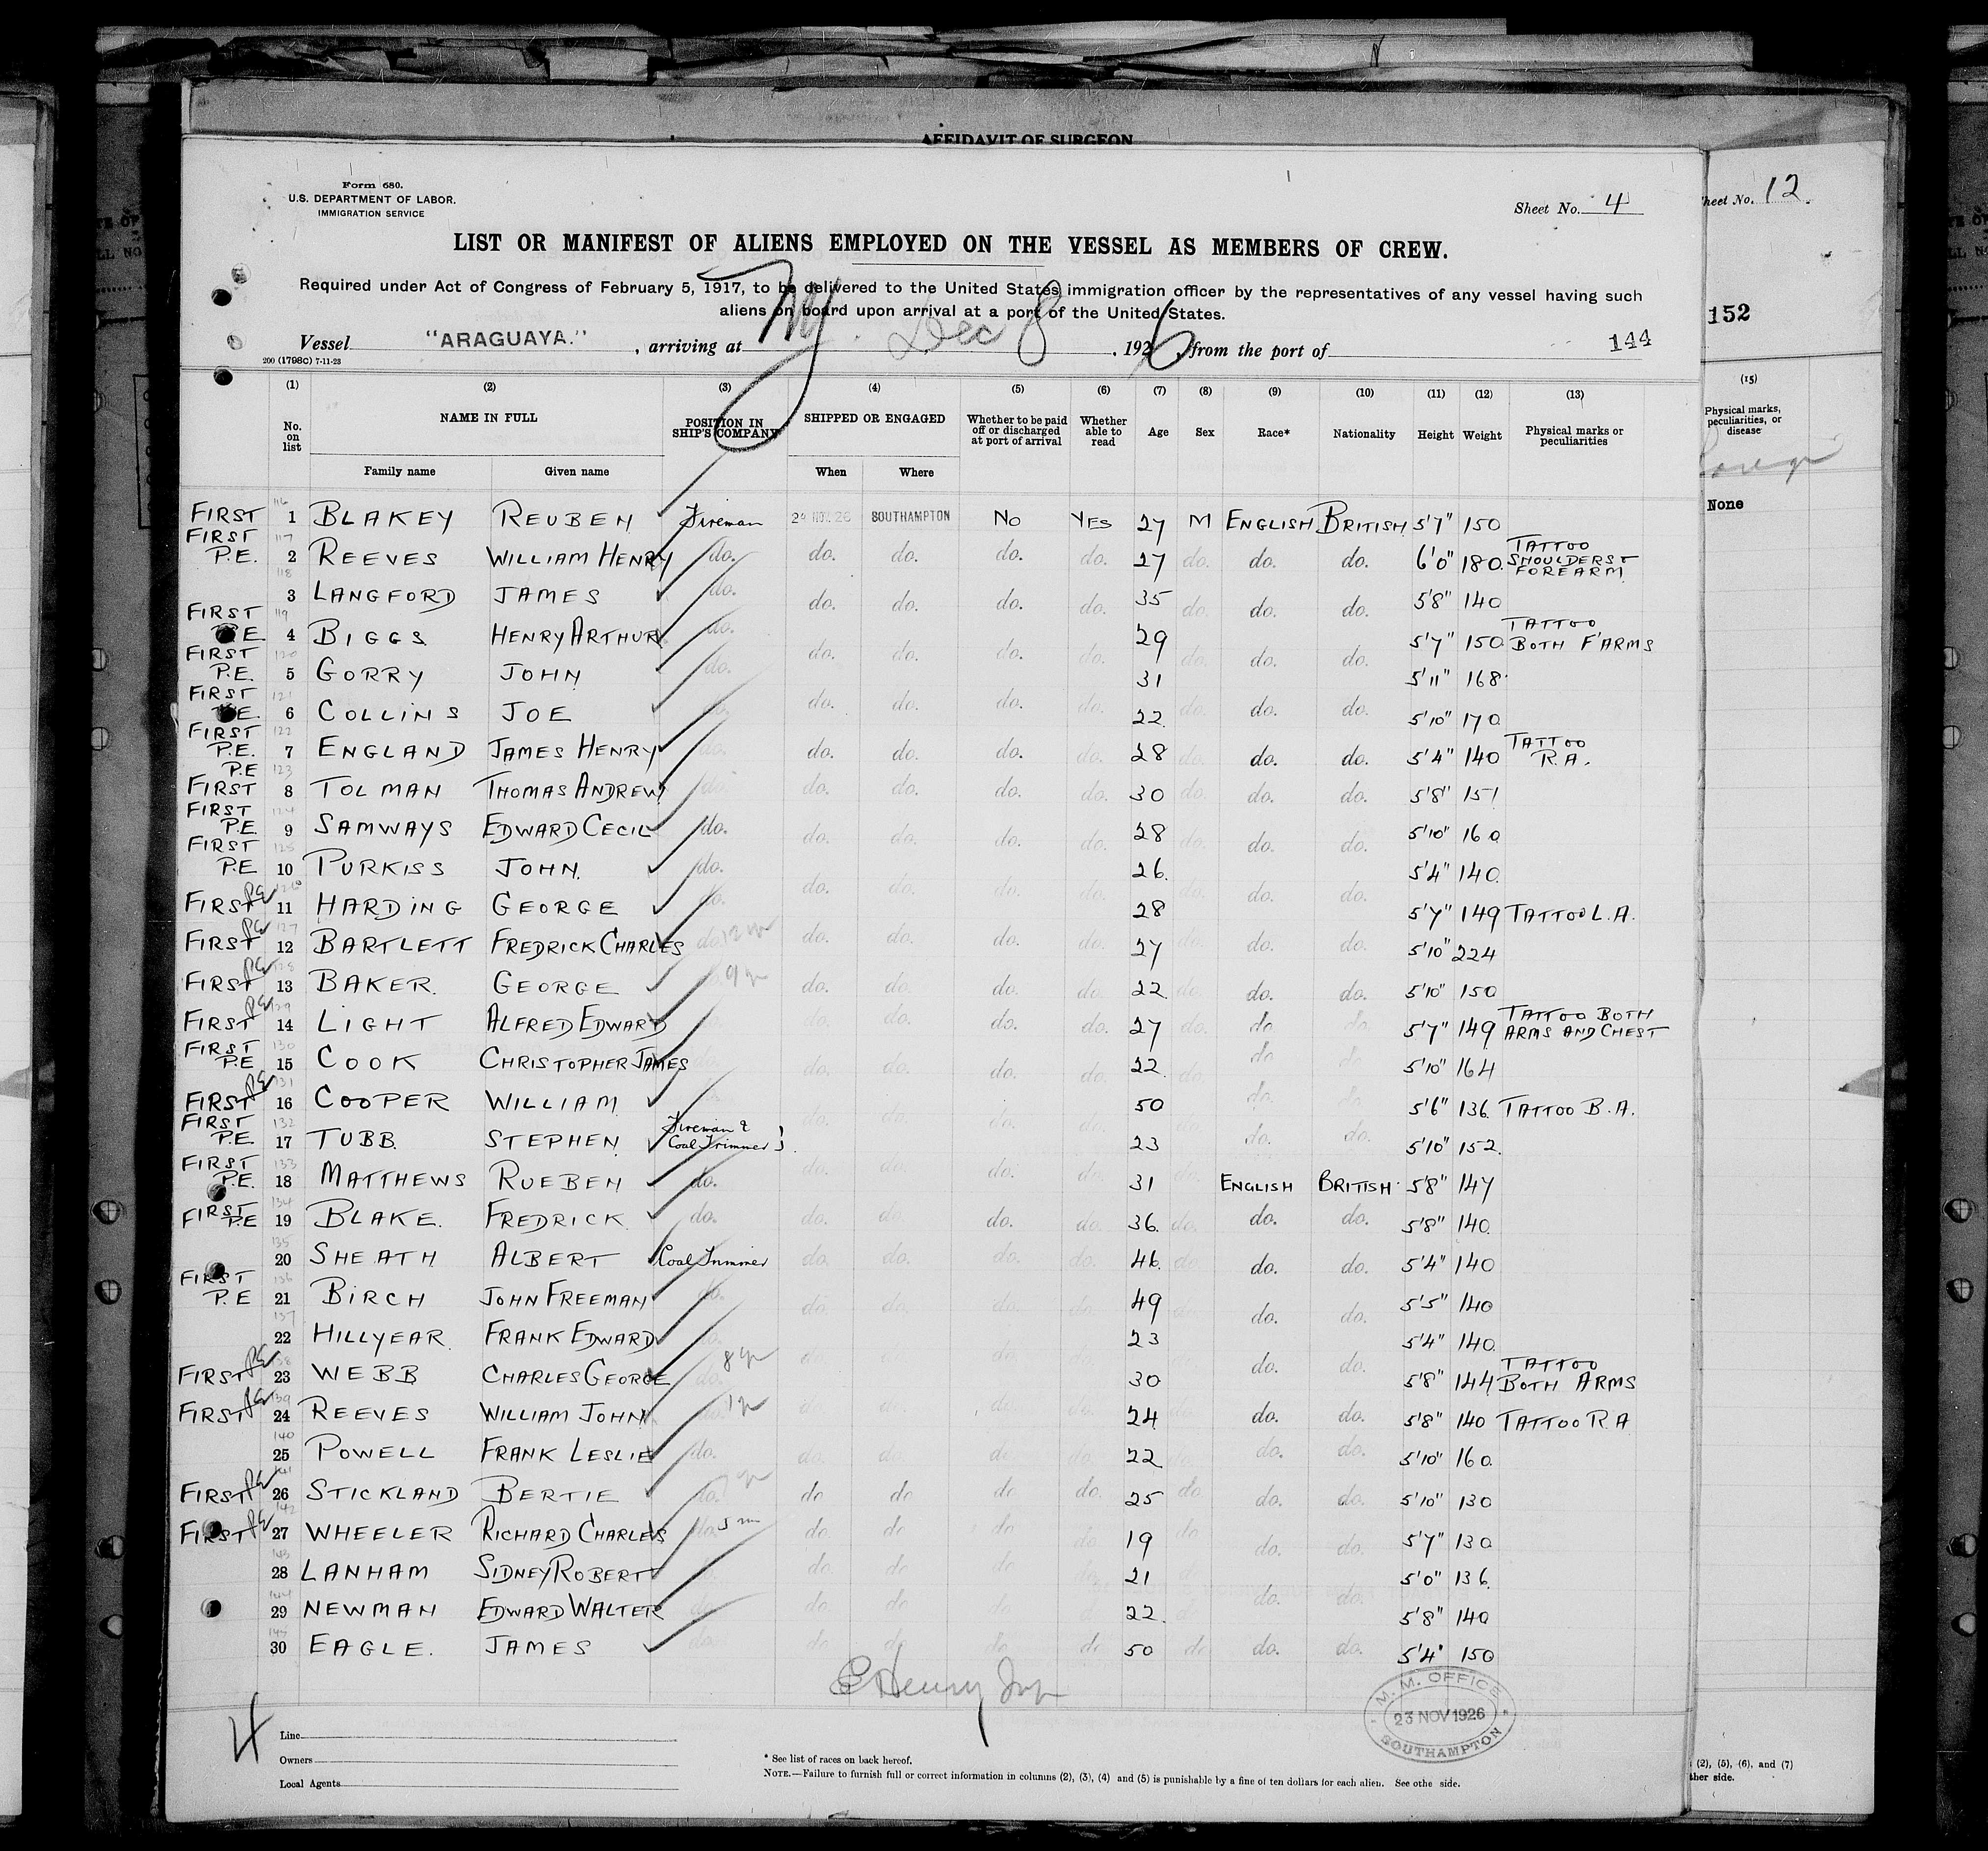 AFFIDAVIT OF SURGEON
Form 680.
U.S. DEPARTMENT OF LABOR.
IMMIGRATION SERVICE
Sheet No. 4
LIST OR MANIFEST OF ALIENS EMPLOYED ON THE VESSEL AS MEMBERS OF CREW.
Required under Act of Congress of February 5, 1917, to be delivered to the United States immigration officer by the representatives of any vessel having such
aliens on board upon arrival at a port of the United States.
Vessel "ARAGUAYA." , arriving at NY. Dec 8 , 1926, from the port of 144
200 (1798C) 7-11-23
(1) (2) (3) (4) (5) (6) (7) (8) (9) (10) (11) (12) (13)
No. on list NAME IN FULL POSITION IN SHIP'S COMPANY SHIPPED OR ENGAGED Whether to be paid off or discharged at port of arrival Whether able to read Age Sex Race* Nationality Height Weight Physical marks or peculiarities
Family name Given name When Where
FIRST 116 1 BLAKEY REUBEN Fireman 24 NOV. 26 SOUTHAMPTON NO YES 27 M ENGLISH BRITISH 5'7" 150
FIRST P.E. 117 2 REEVES WILLIAM HENRY do. do. do. do. do. 27 do. do. do. 6'0" 180 TATTOO SHOULDERS & FOREARM
118 3 LANGFORD JAMES do. do. do. do. do. 35 do. do. do. 5'8" 140
FIRST P.E 119 4 BIGGS HENRY ARTHUR do. 29 5'7" 150 TATTOO BOTH F'ARMS
FIRST P.E. 120 5 GORRY JOHN do. do. do. do. do. 31 do. do. do. 5'11" 168
FIRST P.E. 121 6 COLLINS JOE do. do. do. do. 22 do. do. do. 5'10" 170
FIRST P.E. 122 7 ENGLAND JAMES HENRY do. do. do. do. do. 28 do. do. do. 5'4" 140 TATTOO R.A.
P.E FIRST 123 8 TOLMAN THOMAS ANDREW do. do. do. do. do. 30 do. do. do. 5'8" 151
FIRST P.E. 124 9 SAMWAYS EDWARD CECIL do. do. do. do. do. 28 do. do. do. 5'10" 160
FIRST P.E 125 10 PURKISS JOHN. do. do. do. do. do. 26 do. do. do. 5'4" 140
FIRST PE 126 11 HARDING GEORGE do. 28 5'7" 149 TATTOO L.A.
FIRST PE 127 12 BARTLETT FREDRICK CHARLES do. do. do. do. do. 27 do. do. do. 5'10" 224
FIRST PE 128 13 BAKER. GEORGE do. do. do. do. 22 do. do. do. 5'10" 150
FIRST PE 129 14 LIGHT ALFRED EDWARD do. do. do. do. 27 do. do do. 5'7" 149 TATTOO BOTH ARMS AND CHEST
FIRST P.E 130 15 COOK CHRISTOPHER JAMES do. do. do. do. 22 do. do do. 5'10" 164
FIRST PE 131 16 COOPER WILLIAM 50 do. do. 5'6" 136 TATTOO B.A.
FIRST P.E. 132 17 TUBB. STEPHEN Fireman & Coal Trimmer do. do. do. do. 23 do. do. 5'10" 152
FIRST P.E. 133 18 MATTHEWS RUEBEN do. do. do. do. do. 31 do. ENGLISH BRITISH 5'8" 147
FIRST P.E 134 19 BLAKE. FREDRICK. do. do. do. do. do. 36 do. do. do. 5'8" 140
135 20 SHEATH ALBERT Coal Trimmer do. do. do. do. 46 do. do. do. 5'4" 140
FIRST P.E 136 21 BIRCH JOHN FREEMAN do. do. do. do. do. 49 do. do. do. 5'5" 140
137 22 HILLYEAR FRANK EDWARD 23 5'4" 140
FIRST PE 138 23 WEBB CHARLES GEORGE do. 30 do. do. 5'8" 144 TATTOO BOTH ARMS
FIRST PE 139 24 REEVES WILLIAM JOHN do. do. do. do. 24 do. do. 5'8" 140 TATTOO R A
140 25 POWELL FRANK LESLIE do. do. do. do. do. 22 do. do. do. 5'10" 160
FIRST PE 141 26 STICKLAND BERTIE do. do do do do. 25 do. do. do. 5'10" 130
FIRST PE 142 27 WHEELER RICHARD CHARLES do. do do do do 19 do do. do. 5'7" 130
143 28 LANHAM SIDNEY ROBERT do. do do do. 21 5'0" 136
144 29 NEWMAN EDWARD WALTER do. do do do 22 do. do. do. 5'8" 140
145 30 EAGLE. JAMES do. do do do do 50 do do. do. 5'4" 150
E Henry
M. M. OFFICE
23 NOV 1926
SOUTHAMPTON
4
Line
Owners
Local Agents
* See list of races on back hereof.
NOTE.—Failure to furnish full or correct information in columns (2), (3), (4) and (5) is punishable by a fine of ten dollars for each alien. See othe side.
heet No. 12
152
(15)
Physical marks, peculiarities, or disease
None
(2), (5), (6), and (7)
ther side.